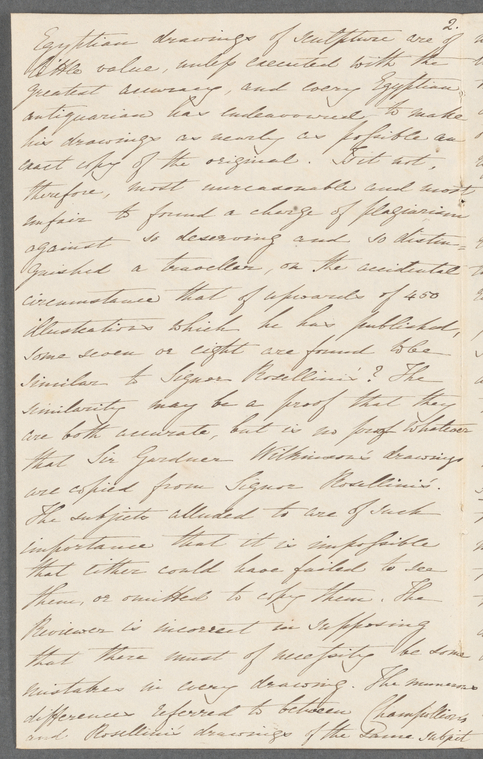 2.
Egyptian drawings of sculpture are of
little value, unless executed with the
greatest accuracy, and every Egyptian
antiquarian has endeavoured to make
his drawings as nearly as possible an
exact copy of the original. Is it not,
therefore, most unreasonable and most
unfair to found a charge of plagiarism
against so deserving and so distin=
guished a traveller, on the accidental
circumstance that of upwards of 450
illustrations which he has published,
some seven or eight are found to be
similar to Signor Rosellini's? The
similarity may be a proof that they
are both accurate, but is no proof whatever
that Sir Gardner Wilkinson's drawings
are copied from Signor Rosellini's.
The subjects alluded to are of such
importance that it is impossible
that either could have failed to see
them, or omitted to copy them. The
Reviewer is incorrect in supposing
that there must of necessity be some
mistakes in every drawing. The numerous
differences referred to between Champollion's
and Rosellini's drawings of the same subject